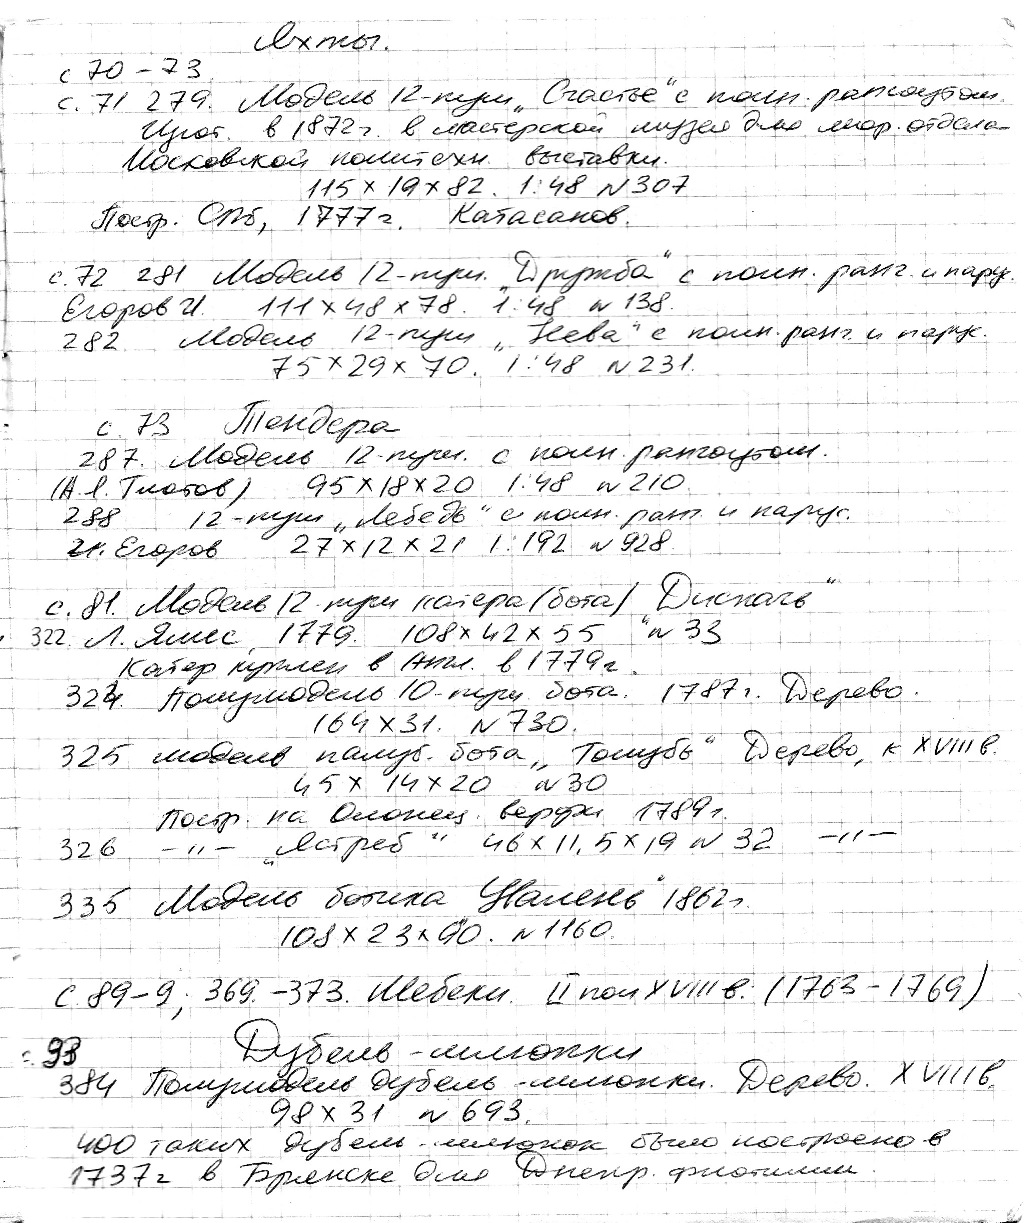 Яхты.
с 70-73
с. 71 279. Модель 12-пуш „Счастье“ с полн. рангоутом.
Изгот. в 1872г. в мастерской музея для мор. отдела
Московской политехн. выставки.
115×19×82. 1:48 №307
Постр. СПб, 1777г. Катасанов.
с. 72 281 Модель 12-пуш. „Дружба“ с полн. ранг. и парус.
Егоров И. 111×48×78. 1:48 №138.
282. Модель 12-пуш „Нева“ с полн. ранг. и парус.
75×29×70. 1:48 №231.
с. 73 Тендера
287. Модель 12-пуш. с полн. рангоутом.
(А. Глотов) 95×18×20 1:48 №210.
288 12-пуш „Лебедь“ с полн. ранг. и парус.
И. Егоров 27×12×21 1:192 №928.
с. 81. Модель 12-пуш катера (бота) „Диспачь“
322. Л. Ямес, 1779. 108×42×55 №33
Катер куплен в Англ. в 1779г.
324. Полумодель 10-пуш. бота. 1787г. Дерево.
164×31. №730.
325 модель палуб. бота „Голубь“ Дерево, к XVIIIв.
45×14×20 №30
Постр. на Олонец. верфи 1789г.
326 -„- „Ястреб“ 46×11,5×19 №32 -„-
335 Модель ботика 1862г.
108×23×90. №1160.
с. 89-9; 369.-373. Шебеки. II пол XVIIIв. (1763-1769)
с. 93 Дубель-шлюпки
384 Полумодель дубель-шлюпки. Дерево. XVIIIв.
98×31 №693.
400 таких дубель-шлюпок было построено в
1737г в Брянске для Днепр. флотилии.